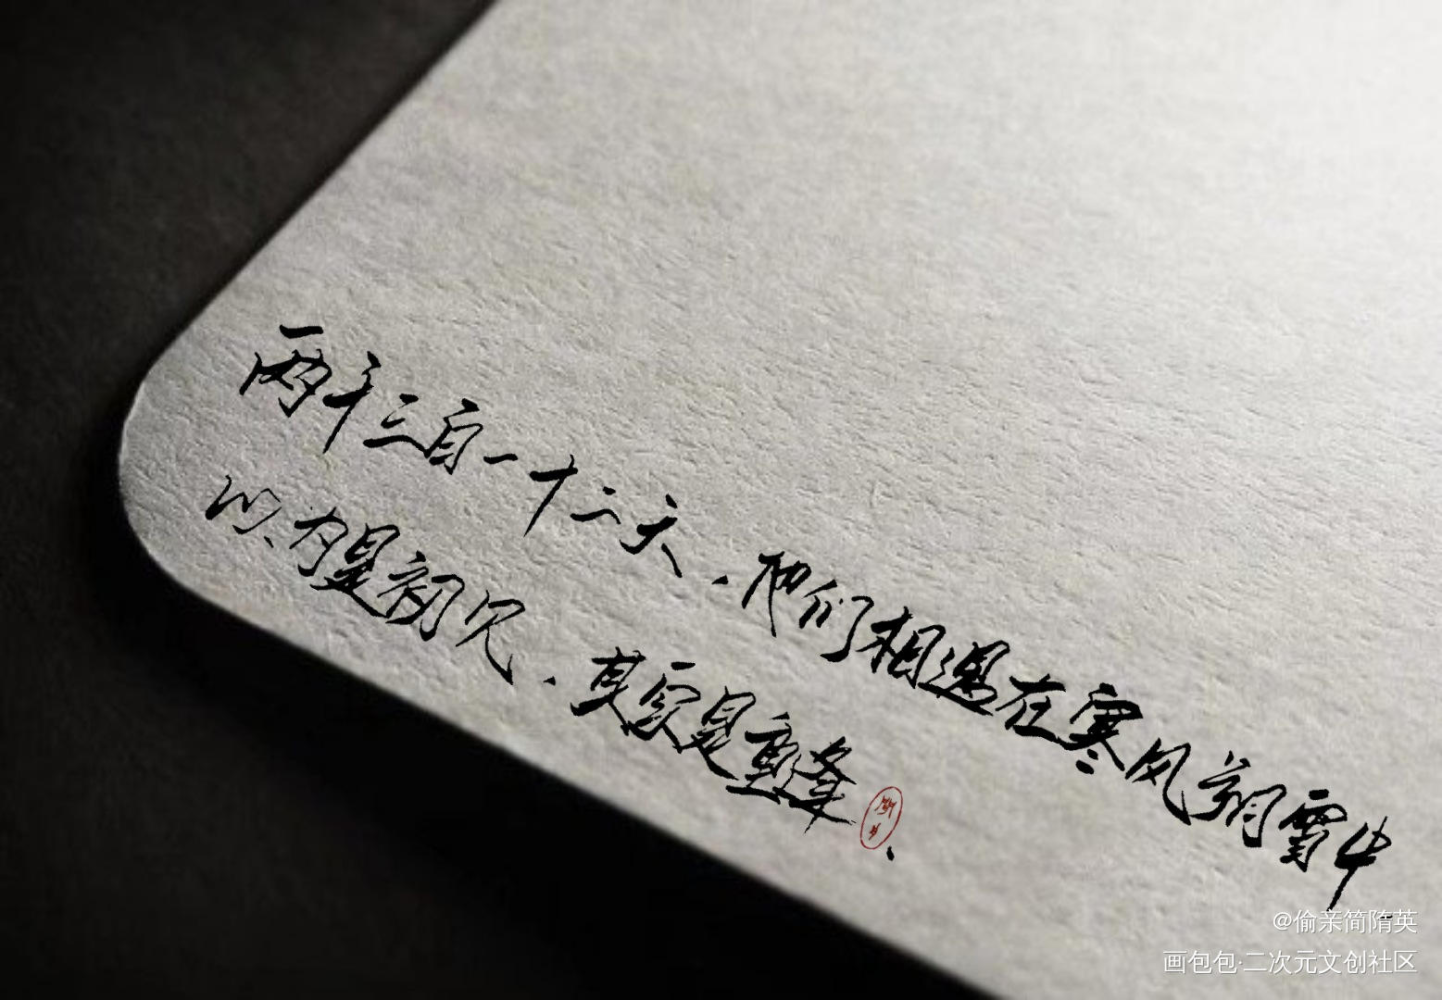 两千三百一十二天，他们相遇在寒风朔雪中
以为是初见，其实是重逢。
@偷亲简隋英
画包包·二次元文创社区